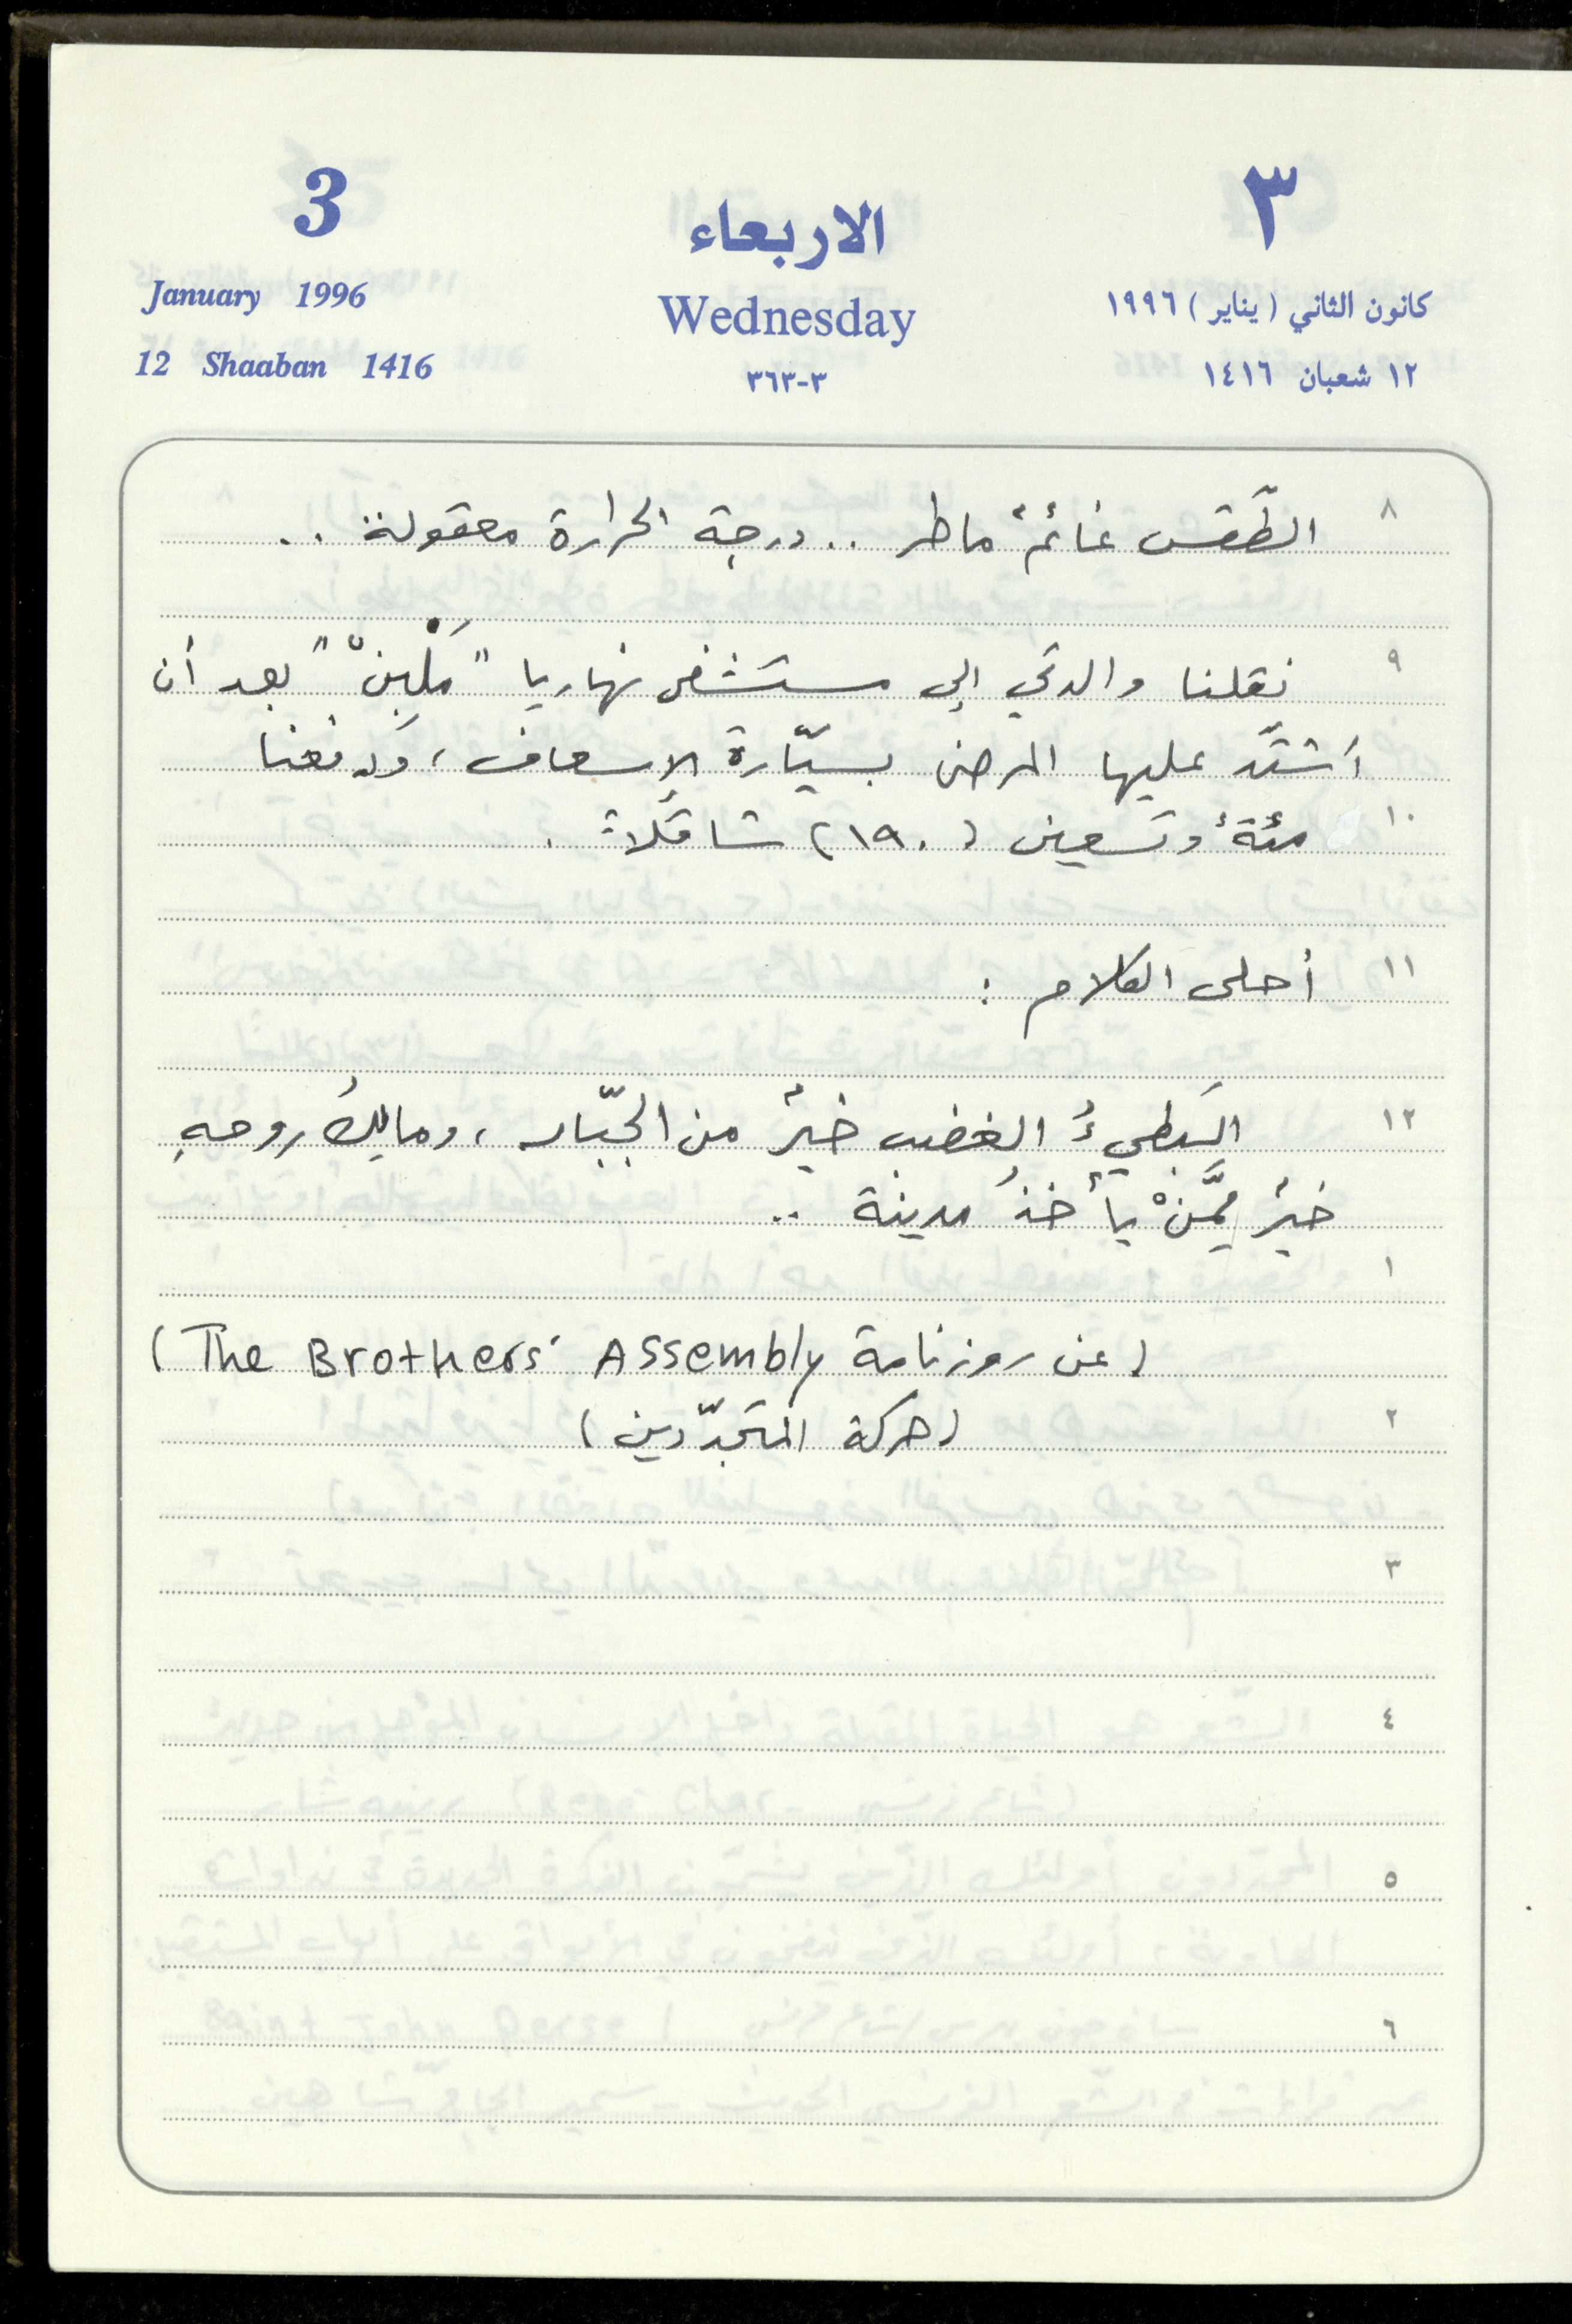 3
الاربعاء
٣
January 1996
Wednesday
كانون الثاني (يناير) ١٩٩٦
12 Shaaban 1416
٣-٣٦٣
١٢ شعبان ١٤١٦
٨ الطّقس غائمٌ ماطر .. درجة الحرارة معقولة ..
٩ نقلنا والدتي إلى مستشفى نهاريا "مَلْبِنْ" بعد أن
اَشتدّ عليها المرض بسيّارة الإسعاف، وَدفعنا
١٠ مئةً وتسعين (١٩٠) شاقلاً.
١١ أحلى الكلام :
١٢ البَطيءُ الغضب خيرٌ من الجبّار، ومالِكُ روحهِ
خيرٌ مِمَّنْ يأخذُ مدينة ..
١
(عن روزنامة The Brothers' Assembly)
٢ (حركة المتجدّدين)
٣
٤
٥
٦